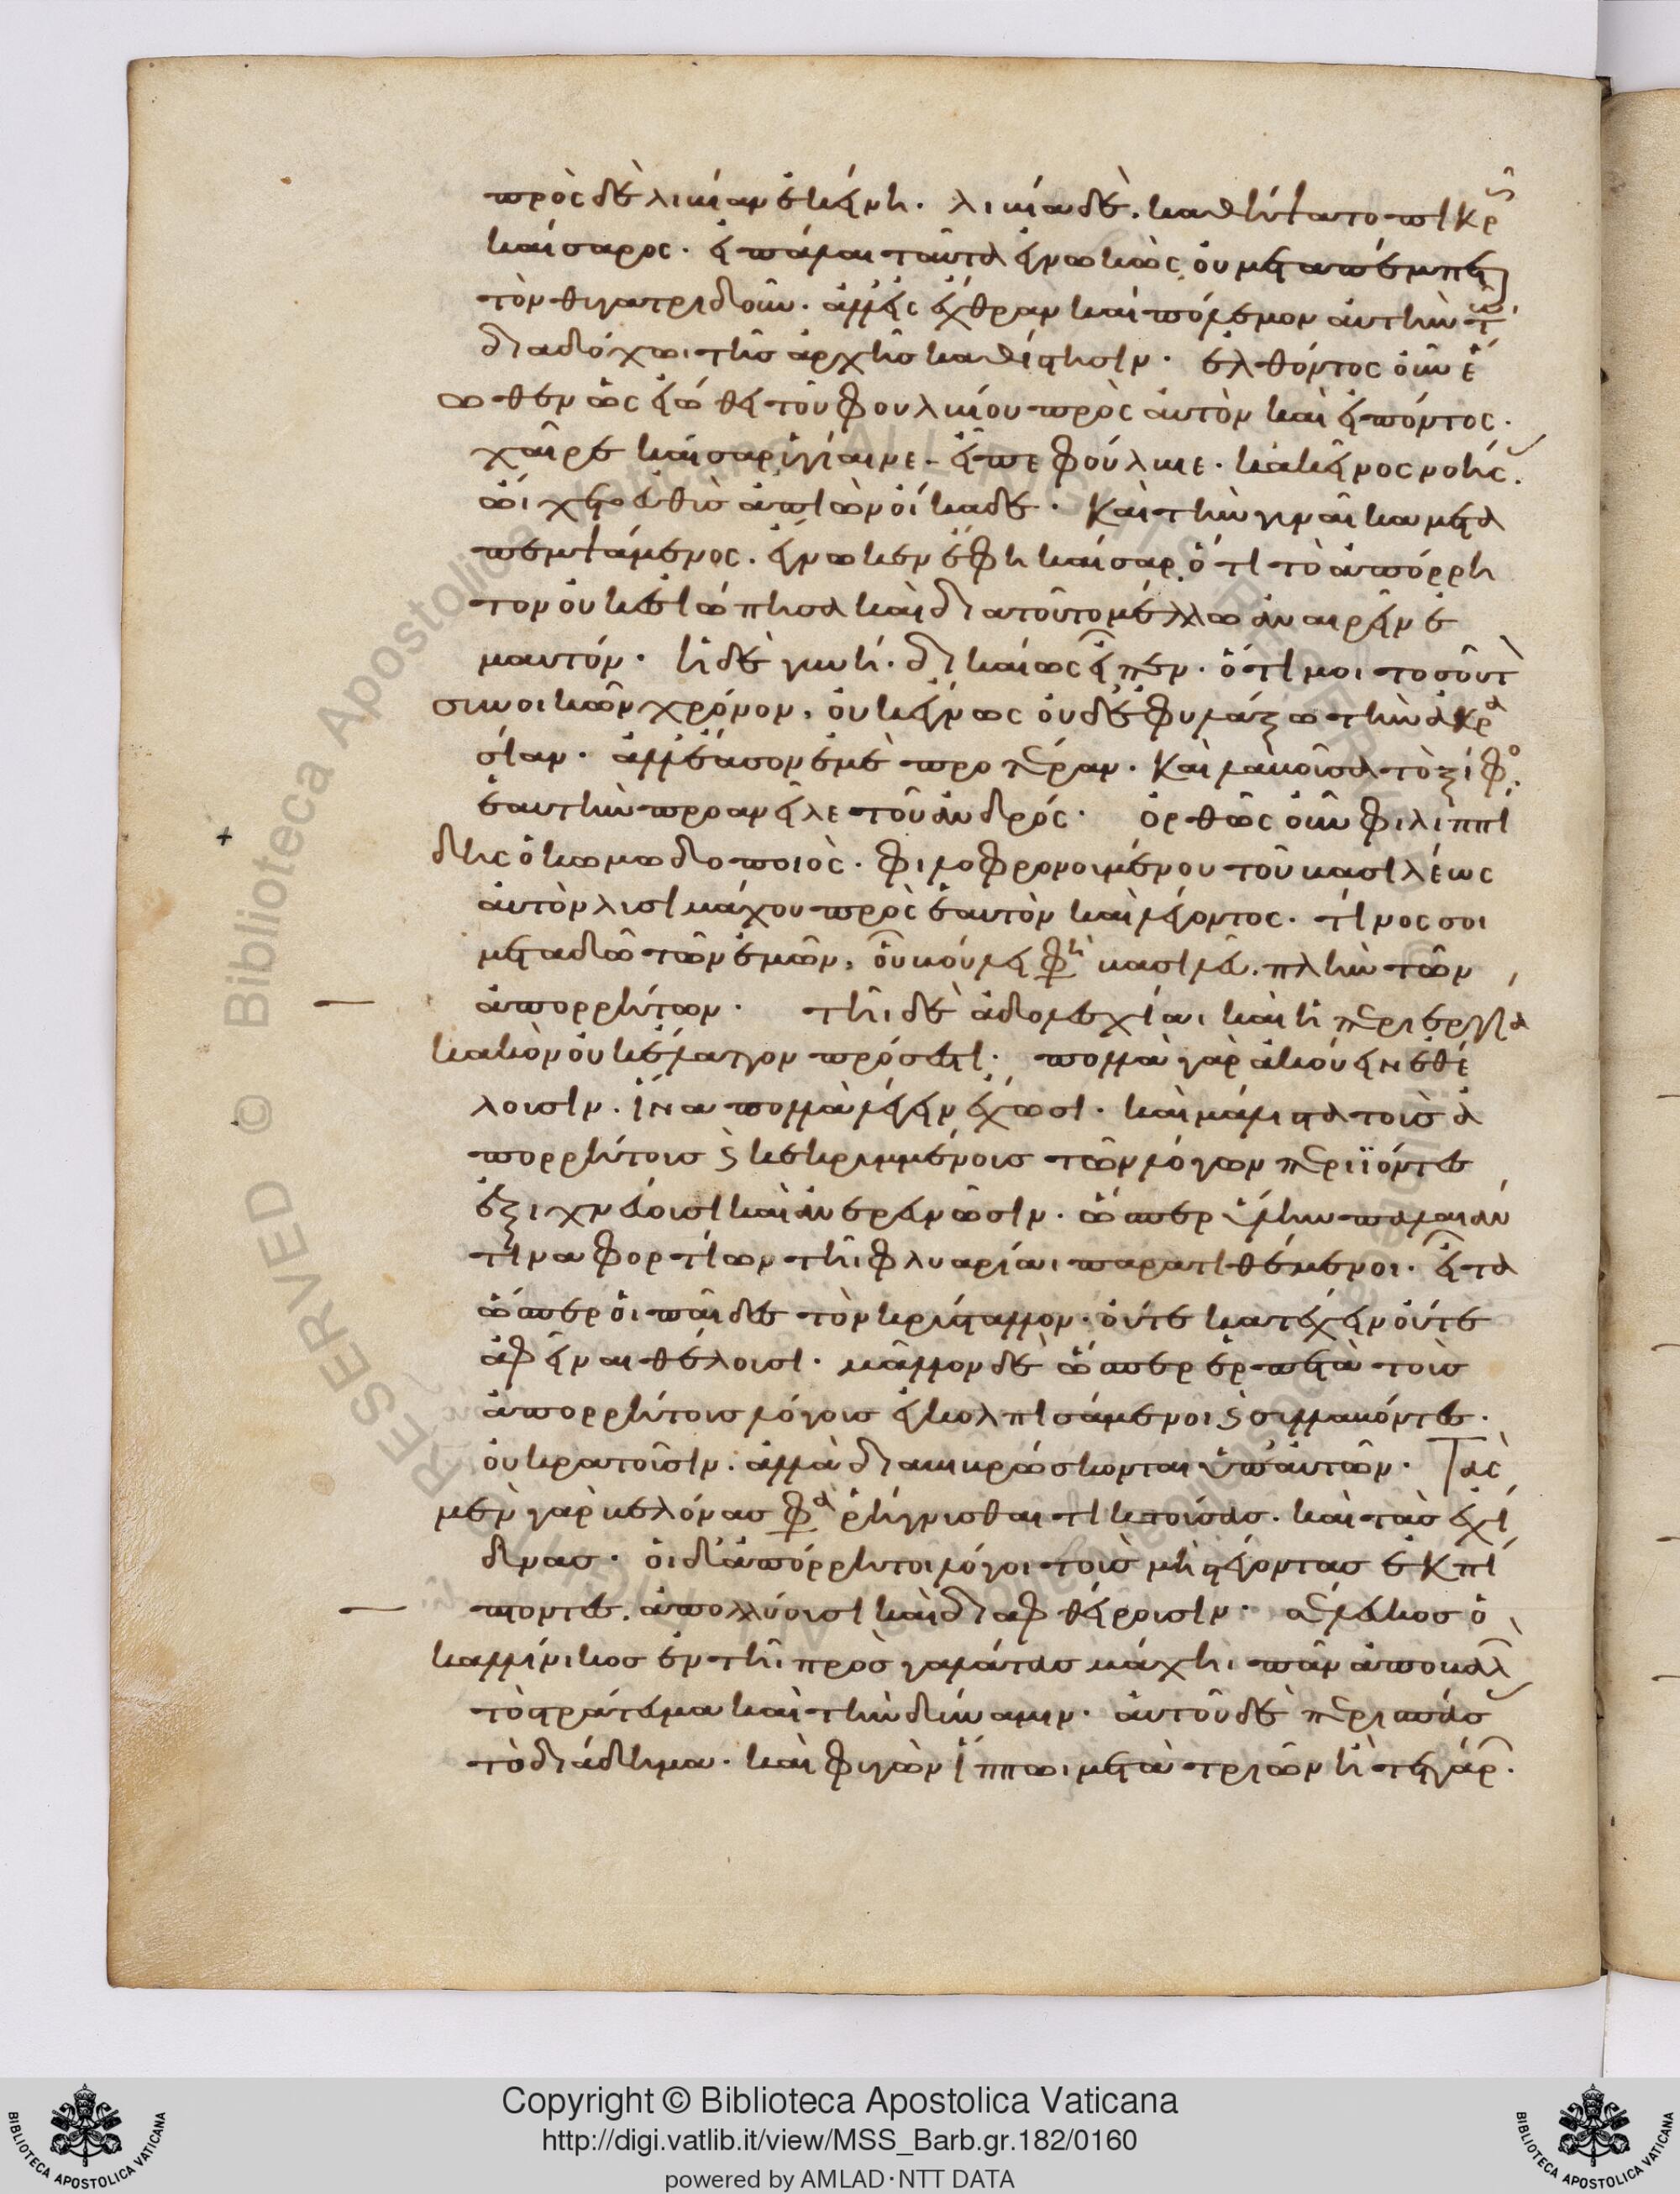 πρὸς δὲ λιβίαν ἐκείνη. λιβία δὲ. καθήψατο πικρῶς
καίσαρος. εἰ πάλαι ταῦτα ἐγνωκὼς, οὐ μεταπέμπεται
τὸν θυγατριδοῦν. ἀλλ' εἰς ἔχθραν καὶ πόλεμον αὐτὴν τῶ
διαδόχωι τῆς ἀρχῆς καθίστησιν. ἐλθόντος οὖν ἕ
ωθεν ὡς εἰώθει τοῦ φουλβίου πρὸς αὐτὸν καὶ εἰπόντος.
χαῖρε καῖσαρ, ὑγίαινε. εἶπε φούλβιε. κἀκεῖνος νοήσας.
ὤιχετο εὐθὺς ἀπιὼν οἴκαδε. καὶ τὴν γυναῖκα μετα
πεμψάμενος. ἔγνωκεν ἔφη καῖσαρ, ὅτι τὸ ἀπόρρη
τον οὐκ ἐσιώπησα καὶ διατοῦτο μέλλω ἀναιρεῖν ἐ
μαυτόν. ἡ δὲ γυνή. δικαίως εἶπεν. ὅτι μοι τοσοῦτον
συνοικῶν χρόνον, οὐκ ἔγνως οὐδὲ ἐφυλάξω τὴν ἀκρα
σίαν. ἀλλ' ἔασον ἐμὲ προτέραν. καὶ λαβοῦσα τὸ ξίφος.
ἑαυτὴν προανεῖλε τοῦ ἀνδρός. ὀρθῶς οὖν φιλιππί
δης ὁ κωμωδοποιὸς. φιλοφρονουμένου τοῦ βασιλέως
αὐτὸν λυσιμάχου πρὸς ἑαυτὸν καὶ λέγοντος. τίνος σοι
μεταδῶ τῶν ἐμῶν, οὗ βούλει φησὶ βασιλεῦ. πλὴν τῶν
ἀπορρήτων. τῆι δὲ ἀδολεσχίαι καὶ ἡ περιεργία
κακὸν οὐκ ἔλαττον πρόσεστι. πολλὰ γὰρ ἀκούειν ἐθέ
λουσιν. ἵνα πολλὰ λέγειν ἔχωσι. καὶ μάλιστα τοὺς ἀ
πορρήτους καὶ κεκρυμμένους τῶν λόγων περιϊόντες
ἐξιχνεύουσι καὶ ἀνερευνῶσιν. ὥσπερ ὕλην παλαιὰν
τινα φορτίων τῆι φλυαρίαι παρατιθέμενοι. εἶτα
ὥσπερ οἱ παῖδες τὸν κρύσταλλον. οὔτε κατέχειν οὔτε
ἀφεῖναι θέλουσι. μᾶλλον δὲ ὥσπερ ἑρπετὰ τοὺς
ἀπορρήτους λόγους ἐγκολπισάμενοι καὶ συλλαβόντες.
οὐ κρατοῦσιν. ἀλλὰ διαβιβρώσκονται ὑπ' αὐτῶν. Τὰς
μὲν γὰρ βελόνας φασὶ ῥήγνυσθαι τικτούσας. καὶ τὰς ἐχί
δνας. οἱ δ' ἀπόρρητοι λόγοι τοὺς μὴ στέγοντας ἐκπί
πτοντες. ἀπολλύουσι καὶ διαφθείρουσιν. σέλευκος ὁ
καλλίνικος ἐν τῆι πρὸς γαλάτας μάχηι πᾶν ἀποβαλὼν
τὸ στράτευμα καὶ τὴν δύναμιν. αὐτοῦ δὲ περισπάσας
τὸ διάδημα. καὶ φυγὼν ἵππωι μετὰ τριῶν ἢ τεττάρων.